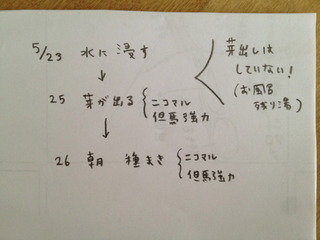 5/23 水に浸す
↓
25 芽が出る { ニコマル
但馬強力
↓
26 朝 種まき { ニコマル
但馬強力
芽出しは
していない!
(お風呂
残り湯)